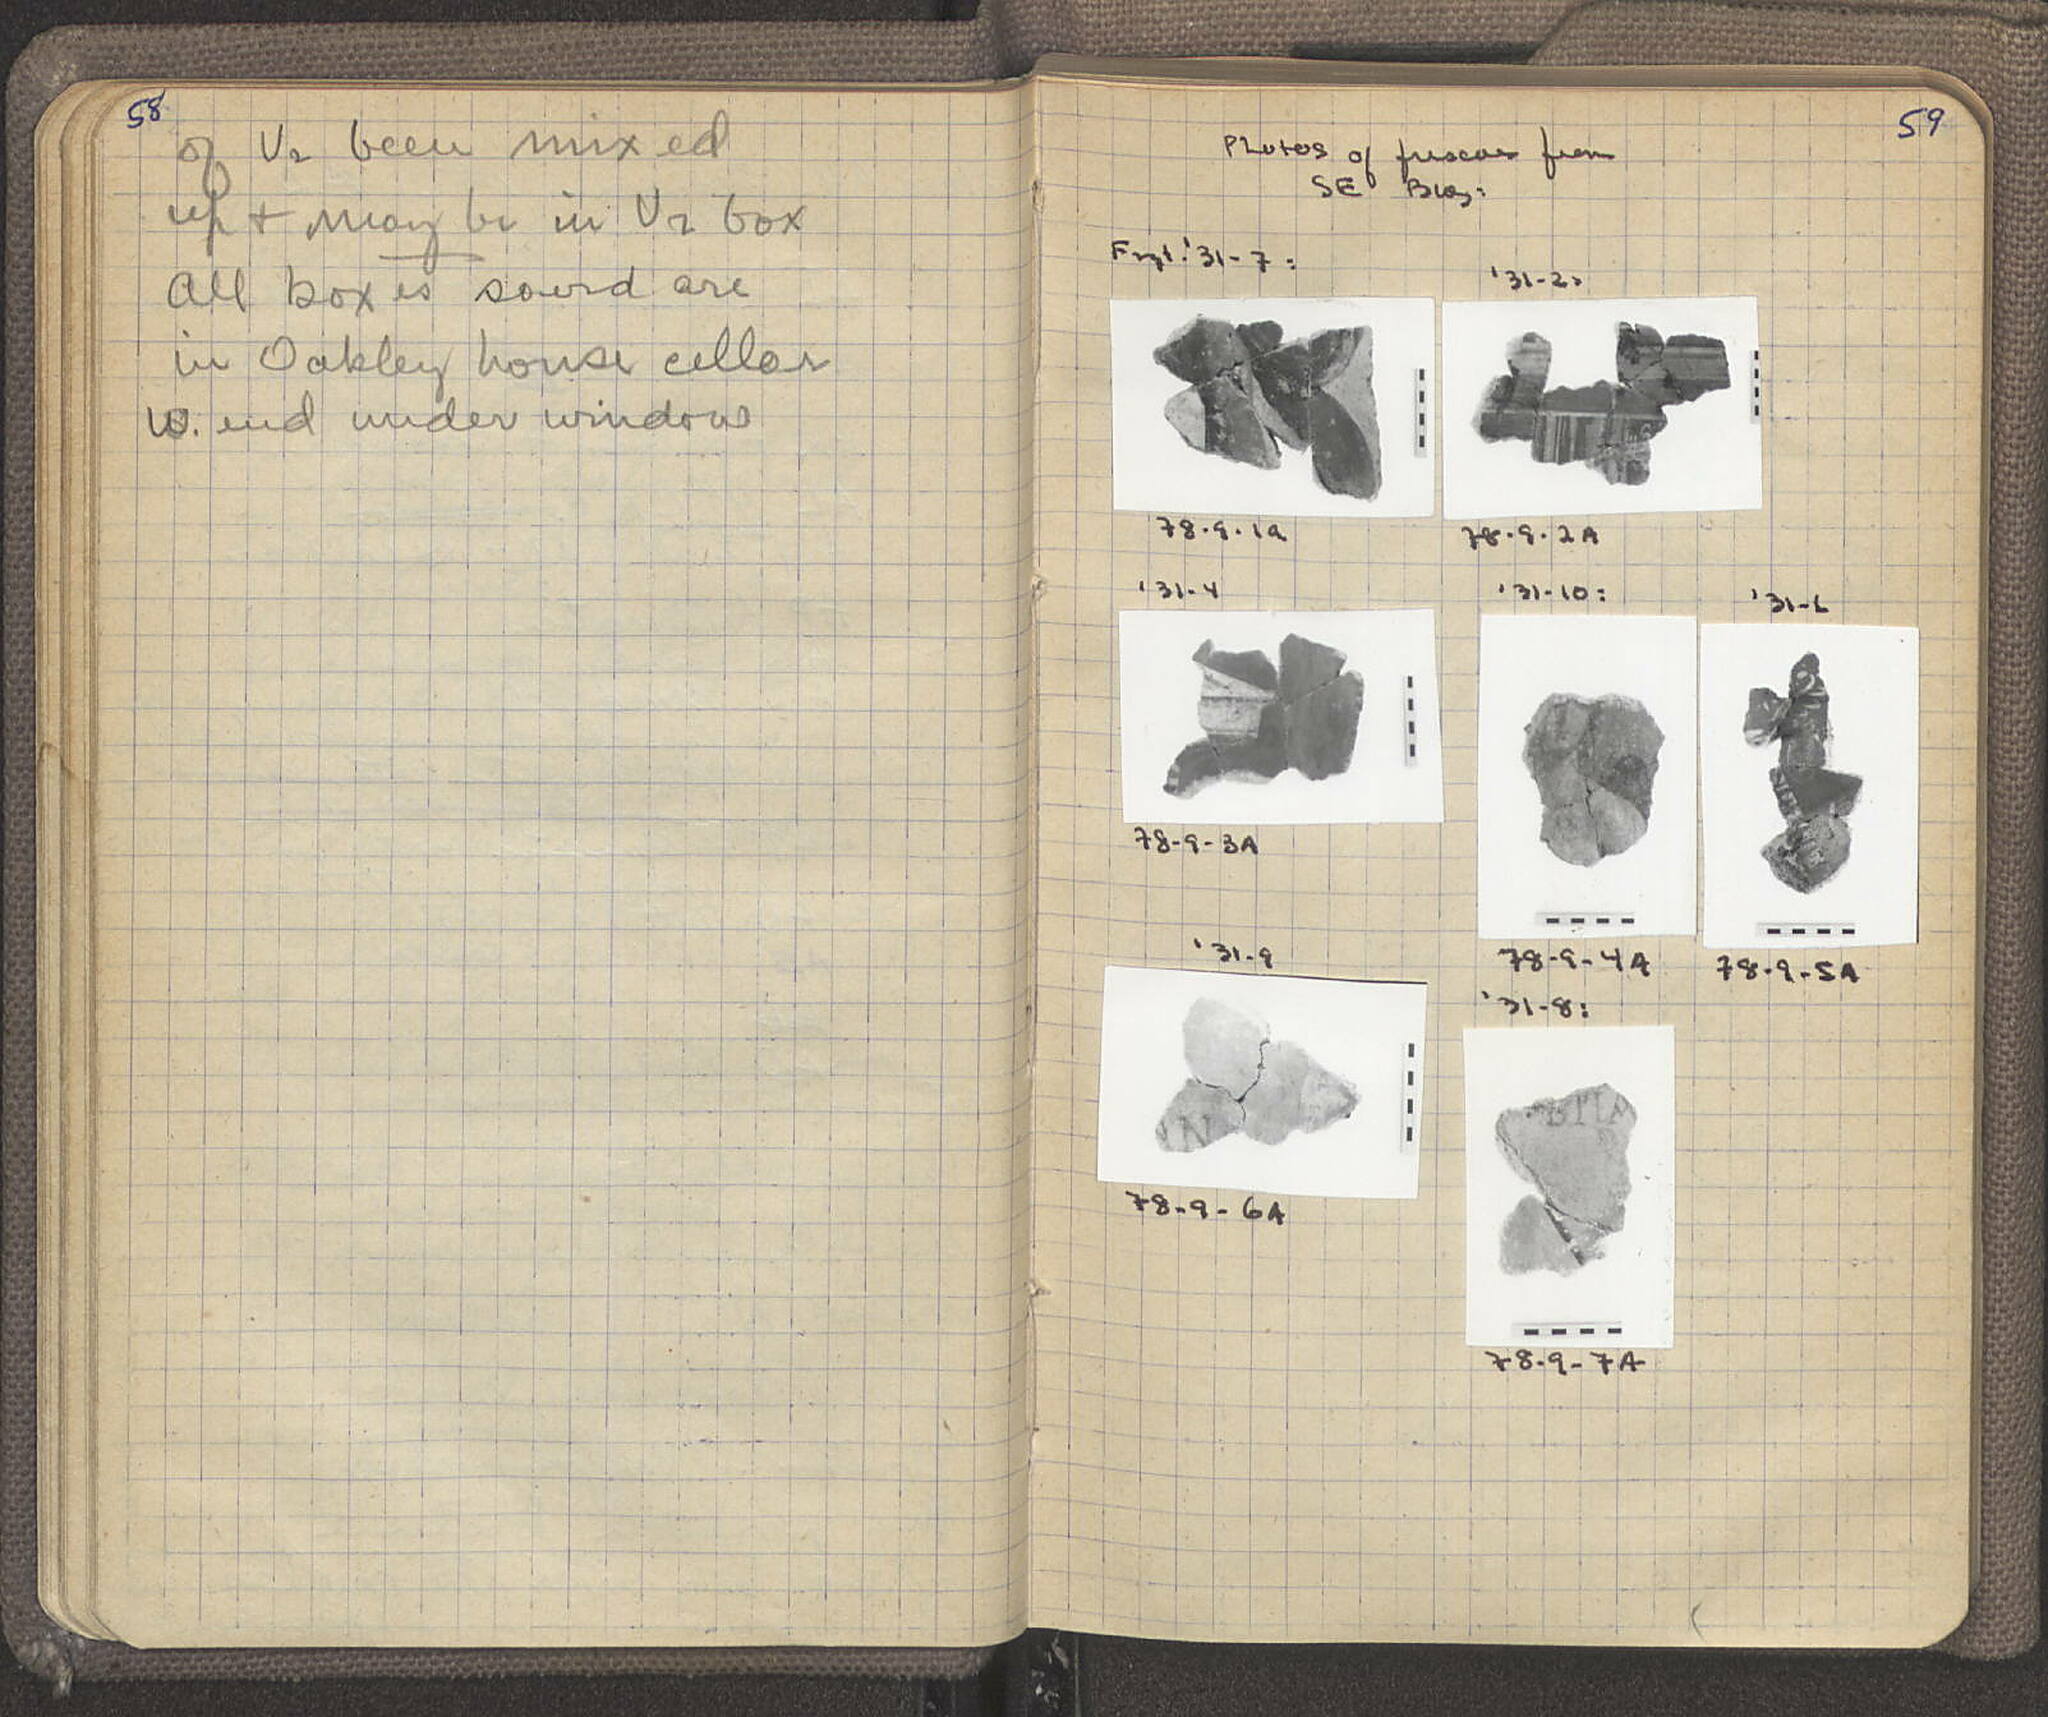 58
of V2 been mixed
up + may be in V2 box
All boxes saved are
in Oakley house cellar
W. end under window
59
Photos of frescoes from
SE Bldg:
Frgt. '31-7:
'31-2:
78-9-1A
78-9-2A
'31-4
'31-10:
'31-6
78-9-3A
78-9-4A
78-9-5A
'31-9
'31-8:
N
78-9-6A
78-9-7A